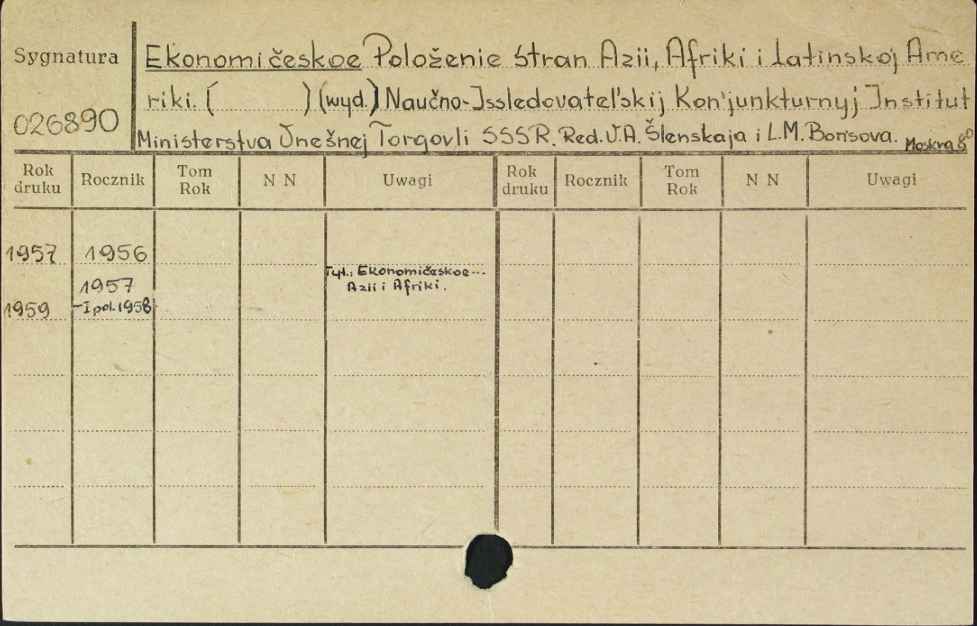 Sygnatura
026890
Ekonomičeskoe Položenie Stran Azii, Afriki i Latinskoj Ame
riki. ( ) (wyd.) Naučno-Issledovatel'skij Kon'junkturnyj Institut
Ministerstva Vnešnej Torgovli SSSR. Red. V.A. Šlenskaja i L.M. Borisova. Moskva 8°
Rok druku Rocznik Tom Rok N N Uwagi Rok druku Rocznik Tom Rok N N Uwagi
1957 1956
1957 Tyt.: Ekonomičeskoe...
Azii i Afriki.
1959 -I poł. 1958